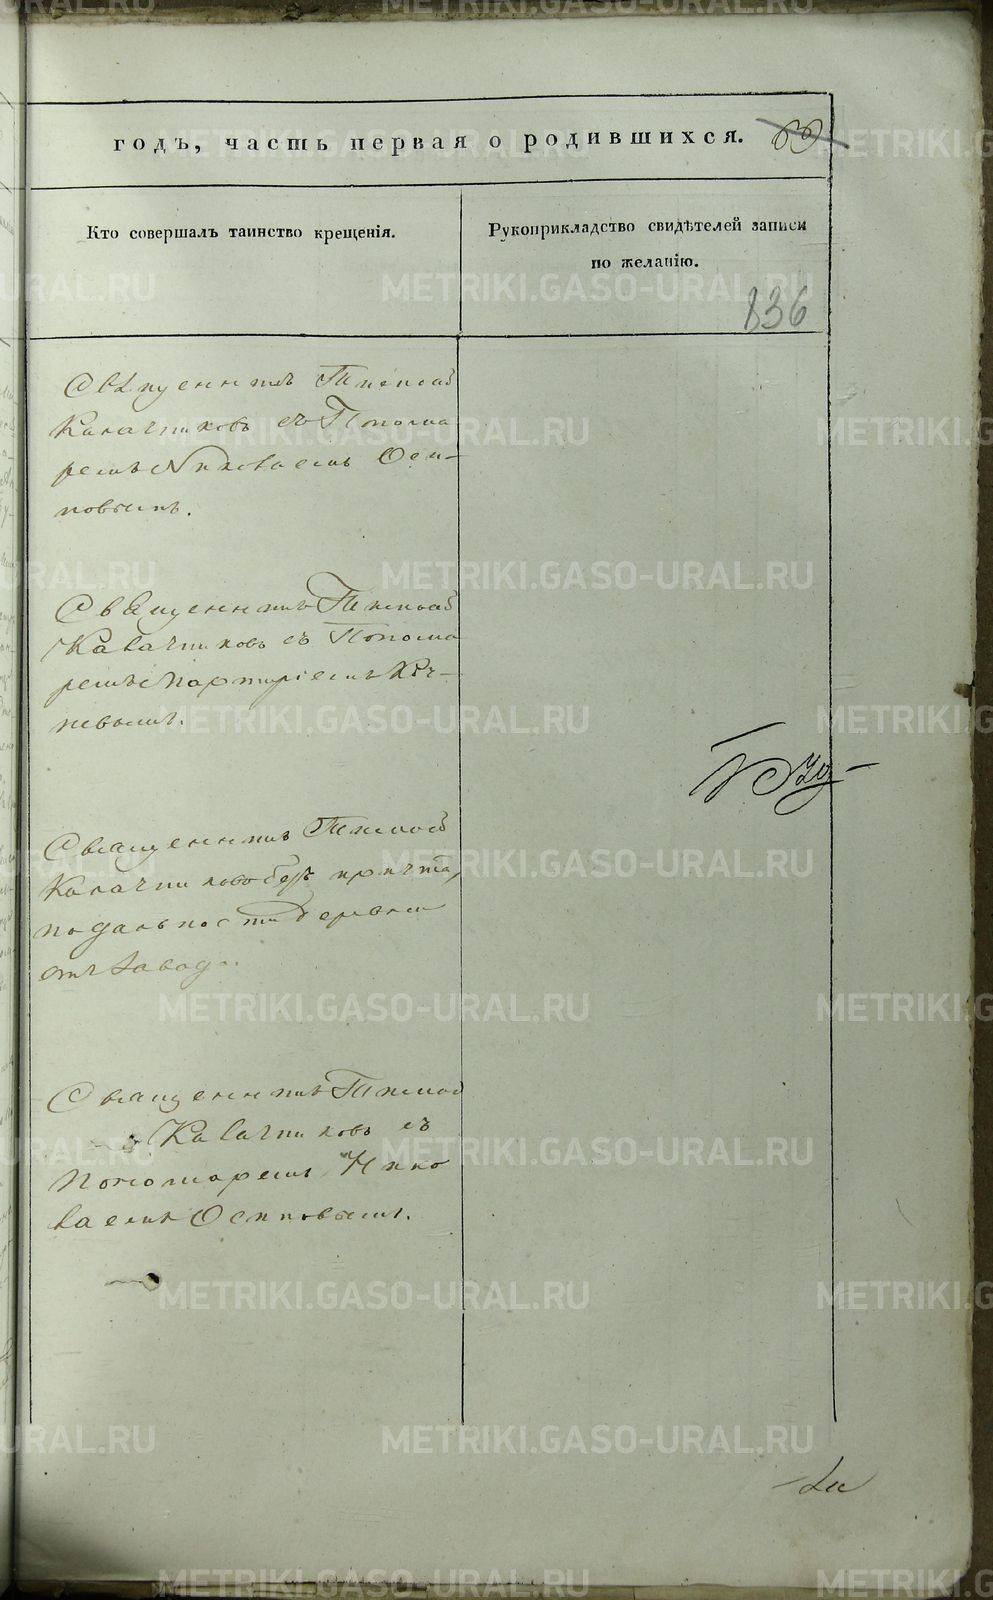 годъ, часть первая о родившихся.
Кто совершалъ таинство крещенія.
Рукоприкладство свидѣтелей записи
по желанію.
836
Священникъ
Калачниковъ съ Понома
ремъ Николаемъ Оси-
повымъ.
Священникъ
Калачниковъ съ Понома
ремъ
Священникъ
Калачниковъ безъ причта,
по дальности деревни
отъ завода.
Священникъ
Калачниковъ съ
Пономаремъ Нико
лаемъ Осиповымъ.
METRIKI.GASO-URAL.RU